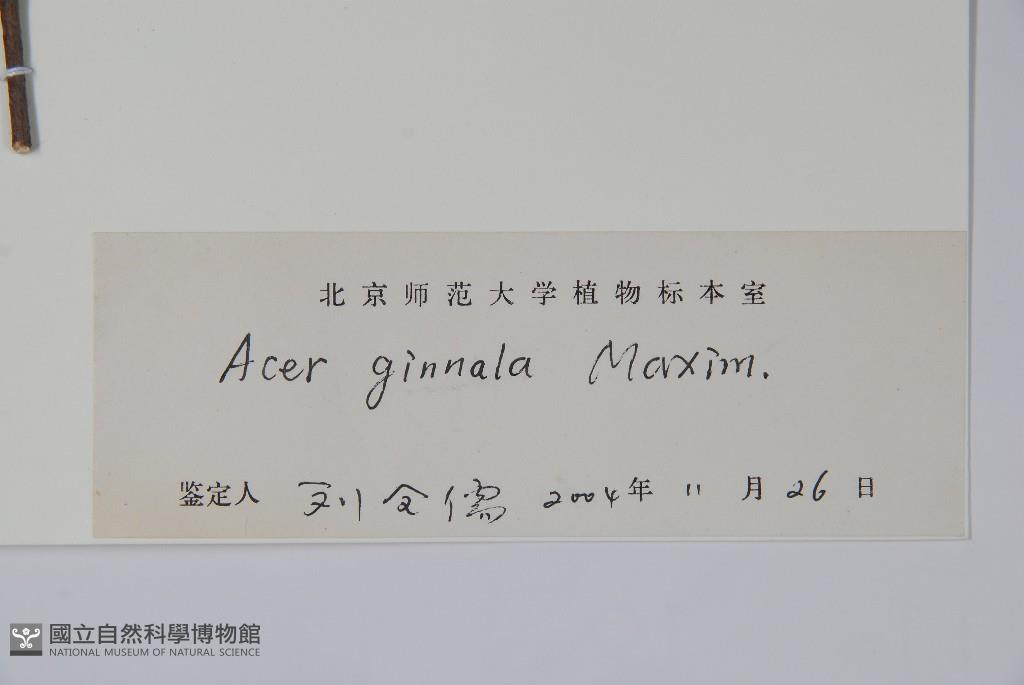 北京师范大学植物标本室
Acer ginnala Maxim.
鉴定人 刘全儒 2004年 11 月 26 日
國立自然科學博物館
NATIONAL MUSEUM OF NATURAL SCIENCE